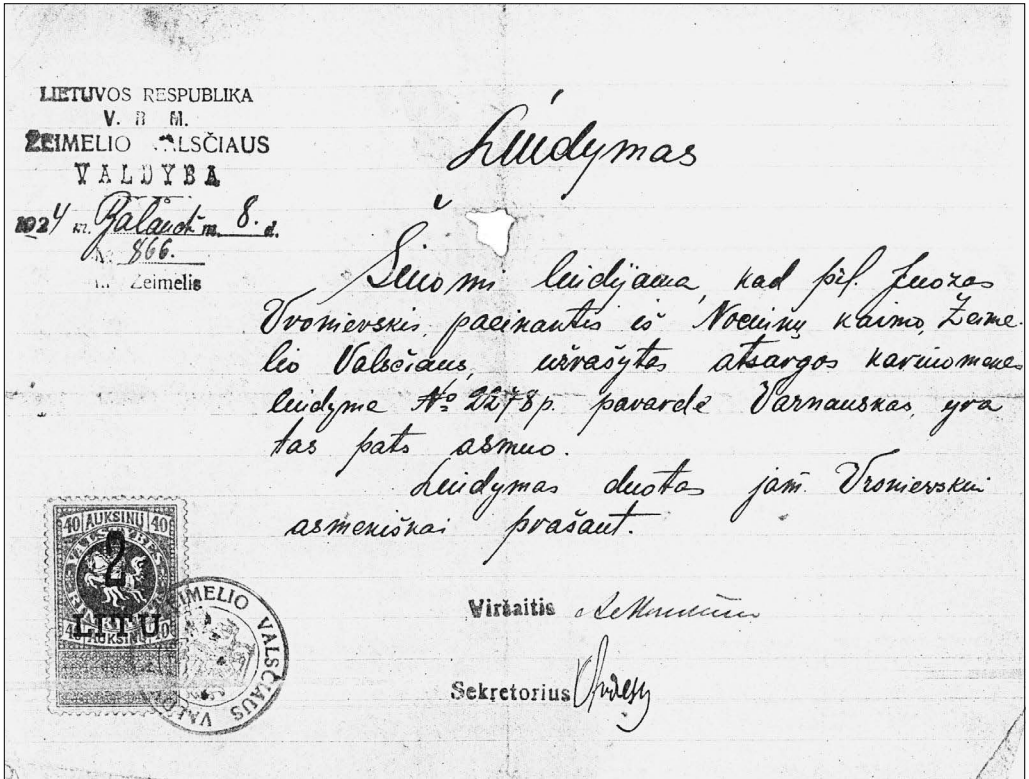 LIETUVOS RESPUBLIKA
V. R. M.
ŽEIMELIO VALSČIAUS
VALDYBA
1924 m. Balandž m. 8. d.
№ 866.
Žeimelis
Liudymas
Šiuomi liudijama, kad pil. Juozas
Vronievskis, paeinantis iš kaimo, Žeime-
lio Valsčiaus, užrašytas atsargos kariuomenės
liudyme № 2278 p. pavarde Varnauskas, yra
tas pats asmuo.
Liudymas duotas jam Vronievskui
asmeniškai prašant.
40 AUKSINŲ 40
2
LITU
40 AUKSINŲ 40
ŽEIMELIO VALSČIAUS
Viršaitis
Sekretorius